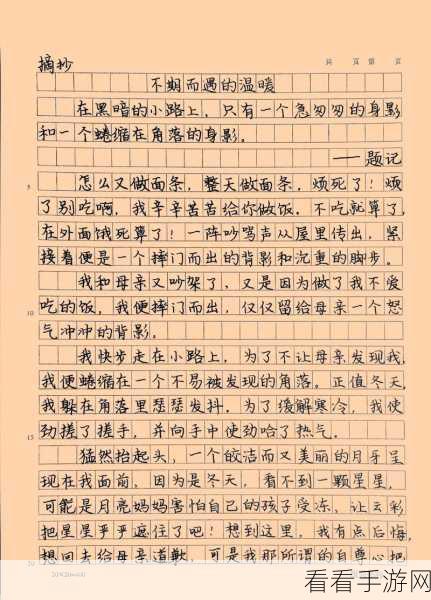 摘抄
共 页 第 页
不期而遇的温暖
在黑暗的小路上，只有一个急匆匆的身影
和一个蜷缩在角落的身影。
——题记
5
怎么又做面条，整天做面条，烦死了！烦
了别吃啊，我辛辛苦苦给你做饭。不吃就算了，
在外面饿死算了！一阵吵骂声从屋里传出，紧
接着便是一个摔门而出的背影和沉重的脚步。
我和母亲又吵架了，又是因为做了我不爱
10
吃的饭，我便摔门而出，仅仅留给母亲一个怒
气冲冲的背影。
我快步走在小路上，为了不让母亲发现我，
我便蜷缩在一个不易被发现的角落。正值冬天，
我躲在角落里瑟瑟发抖。为了缓解寒冷，我使
15
劲搓了搓手，并向手中使劲哈了热气。
猛然抬起头，一个皎洁而又美丽的月牙呈
现在我面前，因为是冬天，看不到一颗星星，
可能是月亮妈妈害怕自己的孩子受冻，让云彩
把星星严严遮住了吧！想到这里，我有点后悔，
20
想回去给母亲道歉，可是我那所谓的自尊心把
20×20=400
看看手游网